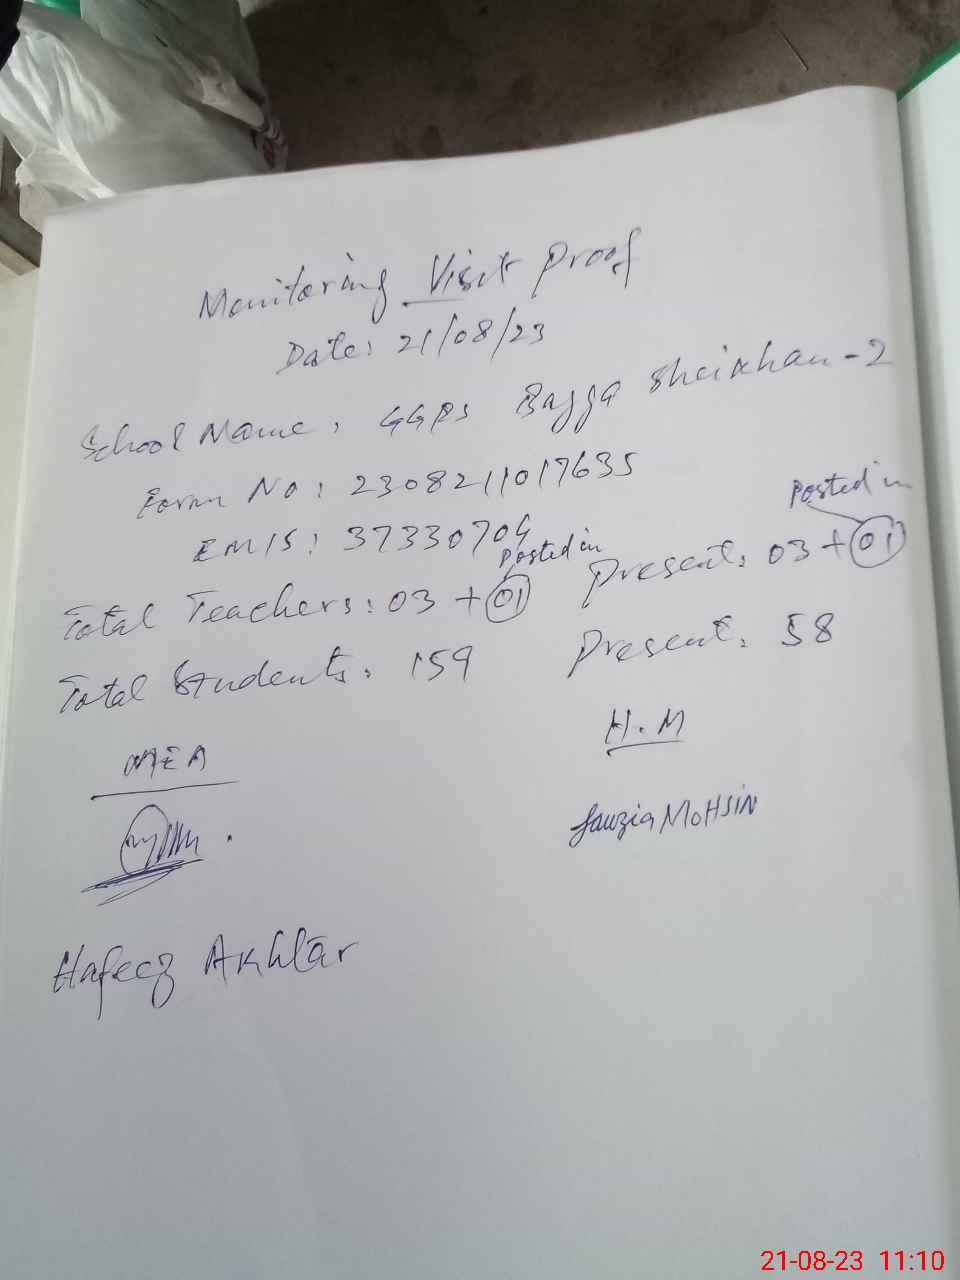 Monitoring Visit Proof
Date: 21/08/23
School Name: GGPS Bagga Sheikhan-2
Form No: 2308211017635
EMIS: 37330704
Posted in
Posted in
Total Teachers: 03 + 01 Present: 03 + 01
Total Students: 159 Present: 58
MEA H.M
Fauzia MOHSIN
Hafeez Akhtar
21-08-23 11:10